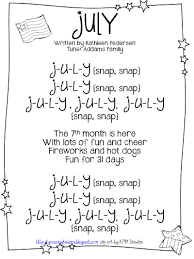 JULY
Written by Kathleen Pedersen
Tune: Addams Family
j-u-l-y (snap, snap)
j-u-l-y (snap, snap)
j-u-l-y, j-u-l-y, j-u-l-y
(snap, snap)
The 7th month is here
With lots of fun and cheer
Fireworks and hot dogs
Fun for 31 days
j-u-l-y (snap, snap)
j-u-l-y (snap, snap)
j-u-l-y, j-u-l-y, j-u-l-y
(snap, snap)